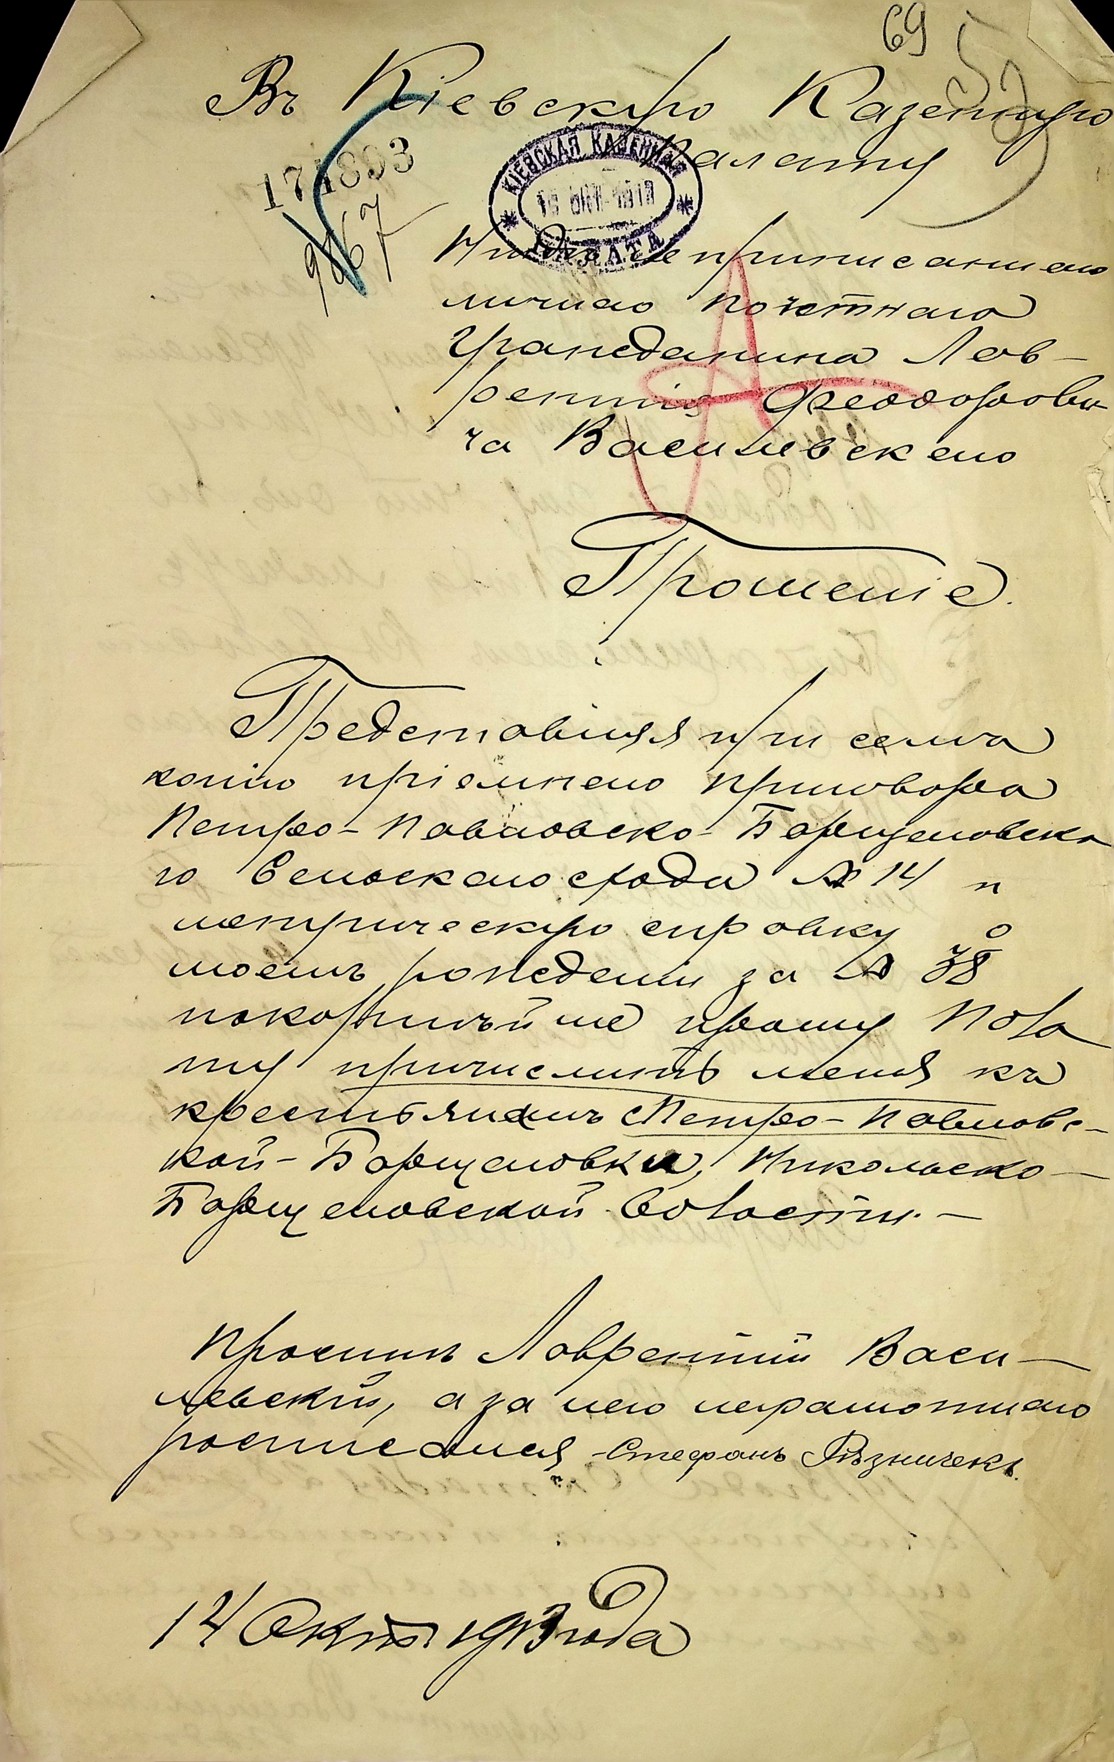 69
Въ Кіевскую Казенную
Палату
174893
9867
КІЕВСКАЯ КАЗЕННАЯ
ПАЛАТА
приписаннаго
личнаго почетнаго
гражданина Лав-
рентія Феодорови-
ча Василевскаго
Прошеніе.
Представляя при семъ
копію пріемнаго приговора
Петро-Павловско-Борщаговска-
го Сельскаго схода № 14 и
метрическую справку о
моемъ рожденіи за № 38
покорнѣйше прошу Пала
ту причислить меня къ
крестьянамъ Петро-Павловс-
кой-Борщаговки, Никольско-
Борщаговской волости.-
Проситъ Лаврентій Васи-
левскій, а за него неграмотнаго
росписался Стефанъ
14 Окт. 1913 года